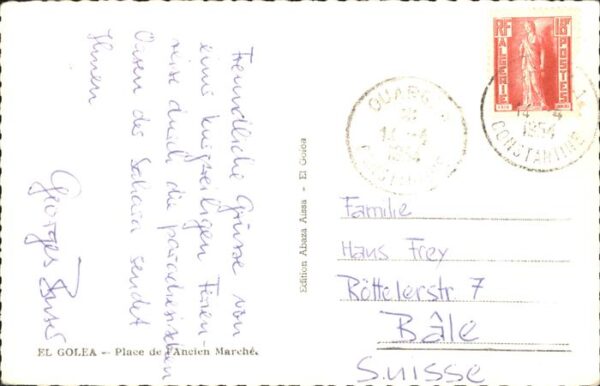 Freundliche Grüsse von
einer kurzweiligen Ferien-
reise durch die paradiesischen
Oasen der Sahara sendet
Ihnen
Georges
EL GOLEA — Place de l'Ancien Marché.
Edition Abaza Aissa - El Golea
OUARG
14 -4
1954
CONSTANTINE
RF
18F
ALGERIE
POSTES
14 -4
1954
CONSTANTINE
Familie
Hans Frey
Röttelerstr 7
Bâle
Suisse